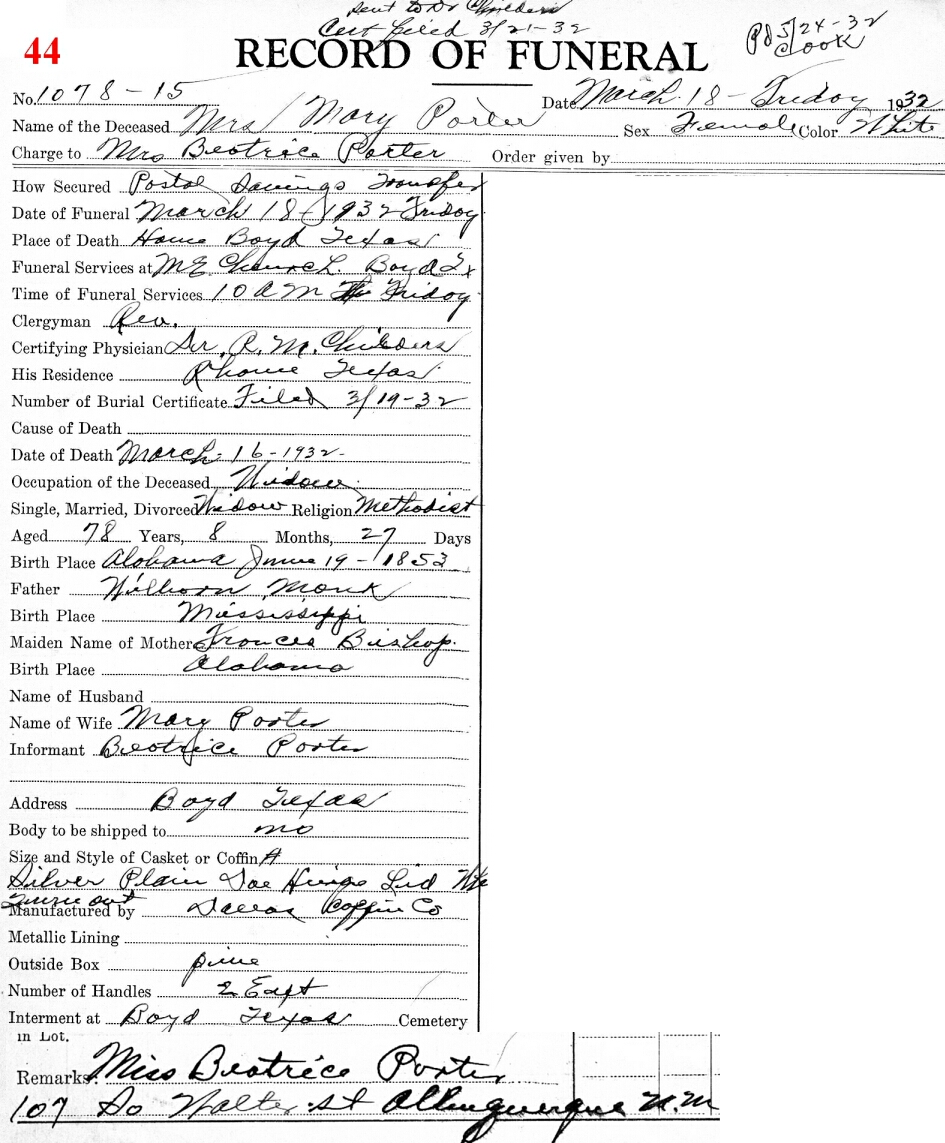 sent to Dr Childers
Cert filed 3/21-32
Pd 5/24-32
Cook
44
RECORD OF FUNERAL
No. 1078-15 Date March 18 - Friday 1932
Name of the Deceased Mrs Mary Porter Sex Female Color White
Charge to Mrs Beatrice Porter Order given by
How Secured Postal Savings Transfer
Date of Funeral March 18-1932 Friday
Place of Death Home Boyd Texas
Funeral Services at M E Church. Boyd Tx
Time of Funeral Services 10 AM Friday
Clergyman Rev.
Certifying Physician Dr. R. M. Childers
His Residence Rhome Texas
Number of Burial Certificate Filed 3/19-32
Cause of Death
Date of Death March 16-1932-
Occupation of the Deceased Widow
Single, Married, Divorced Widow Religion Methodist
Aged 78 Years, 8 Months, 27 Days
Birth Place Alabama June 19-1853
Father Wilborn Monk
Birth Place Mississippi
Maiden Name of Mother Frances Bishop
Birth Place Alabama
Name of Husband
Name of Wife Mary Porter
Informant Beatrice Porter
Address Boyd Texas
Body to be shipped to no
Size and Style of Casket or Coffin
Silver Plain Doe Hinge Lid
Manufactured by Dallas Coffin Co
Metallic Lining
Outside Box pine
Number of Handles 2 Ea
Interment at Boyd Texas Cemetery
in Lot.
Remarks: Miss Beatrice Porter
107 So Walter St Albuquerque N.M